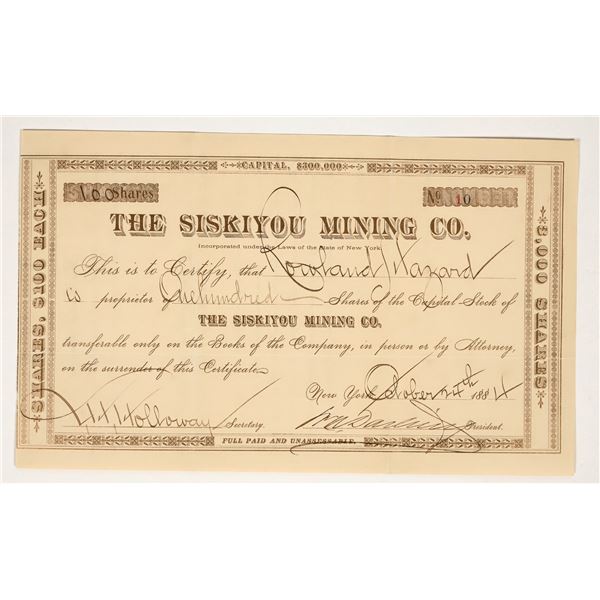 CAPITAL, $300,000
100 Shares
No. 10
THE SISKIYOU MINING CO.
Incorporated under the Laws of the State of New York
This is to Certify, that Rowland Hazard
is proprietor of One hundred Shares of the Capital Stock of
THE SISKIYOU MINING CO,
transferable only on the Books of the Company, in person or by Attorney,
on the surrender of this Certificate.
New York October 24th 1884
Holloway Secretary.
President.
FULL PAID AND UNASSESSABLE.
SHARES, $100 EACH
3,000 SHARES